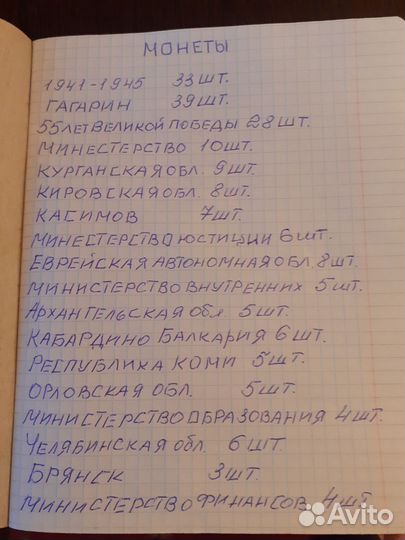 МОНЕТЫ
1941-1945 33 ШТ.
ГАГАРИН 39 ШТ.
55 ЛЕТ ВЕЛИКОЙ ПОБЕДЫ 28 ШТ.
МИНЕСТЕРСТВО 10 ШТ.
КУРГАНСКАЯ ОБЛ. 9 ШТ.
КИРОВСКАЯ ОБЛ. 8 ШТ.
КАСИМОВ 7 ШТ.
МИНЕСТЕРСТВО ЮСТИЦИИ 6 ШТ.
ЕВРЕЙСКАЯ АВТОНОМНАЯ ОБЛ 8 ШТ.
МИНИСТЕРСТВО ВНУТРЕННИХ 5 ШТ.
АРХАНГЕЛЬСКАЯ ОБЛ 5 ШТ.
КАБАРДИНО БАЛКАРИЯ 6 ШТ.
РЕСПУБЛИКА КОМИ 5 ШТ.
ОРЛОВСКАЯ ОБЛ. 5 ШТ.
МИНИСТЕРСТВО ОБРАЗОВАНИЯ 4 ШТ.
ЧЕЛЯБИНСКАЯ ОБЛ. 6 ШТ.
БРЯНСК 3 ШТ.
МИНИСТЕРСТВО ФИНАНСОВ 4 ШТ.
Avito